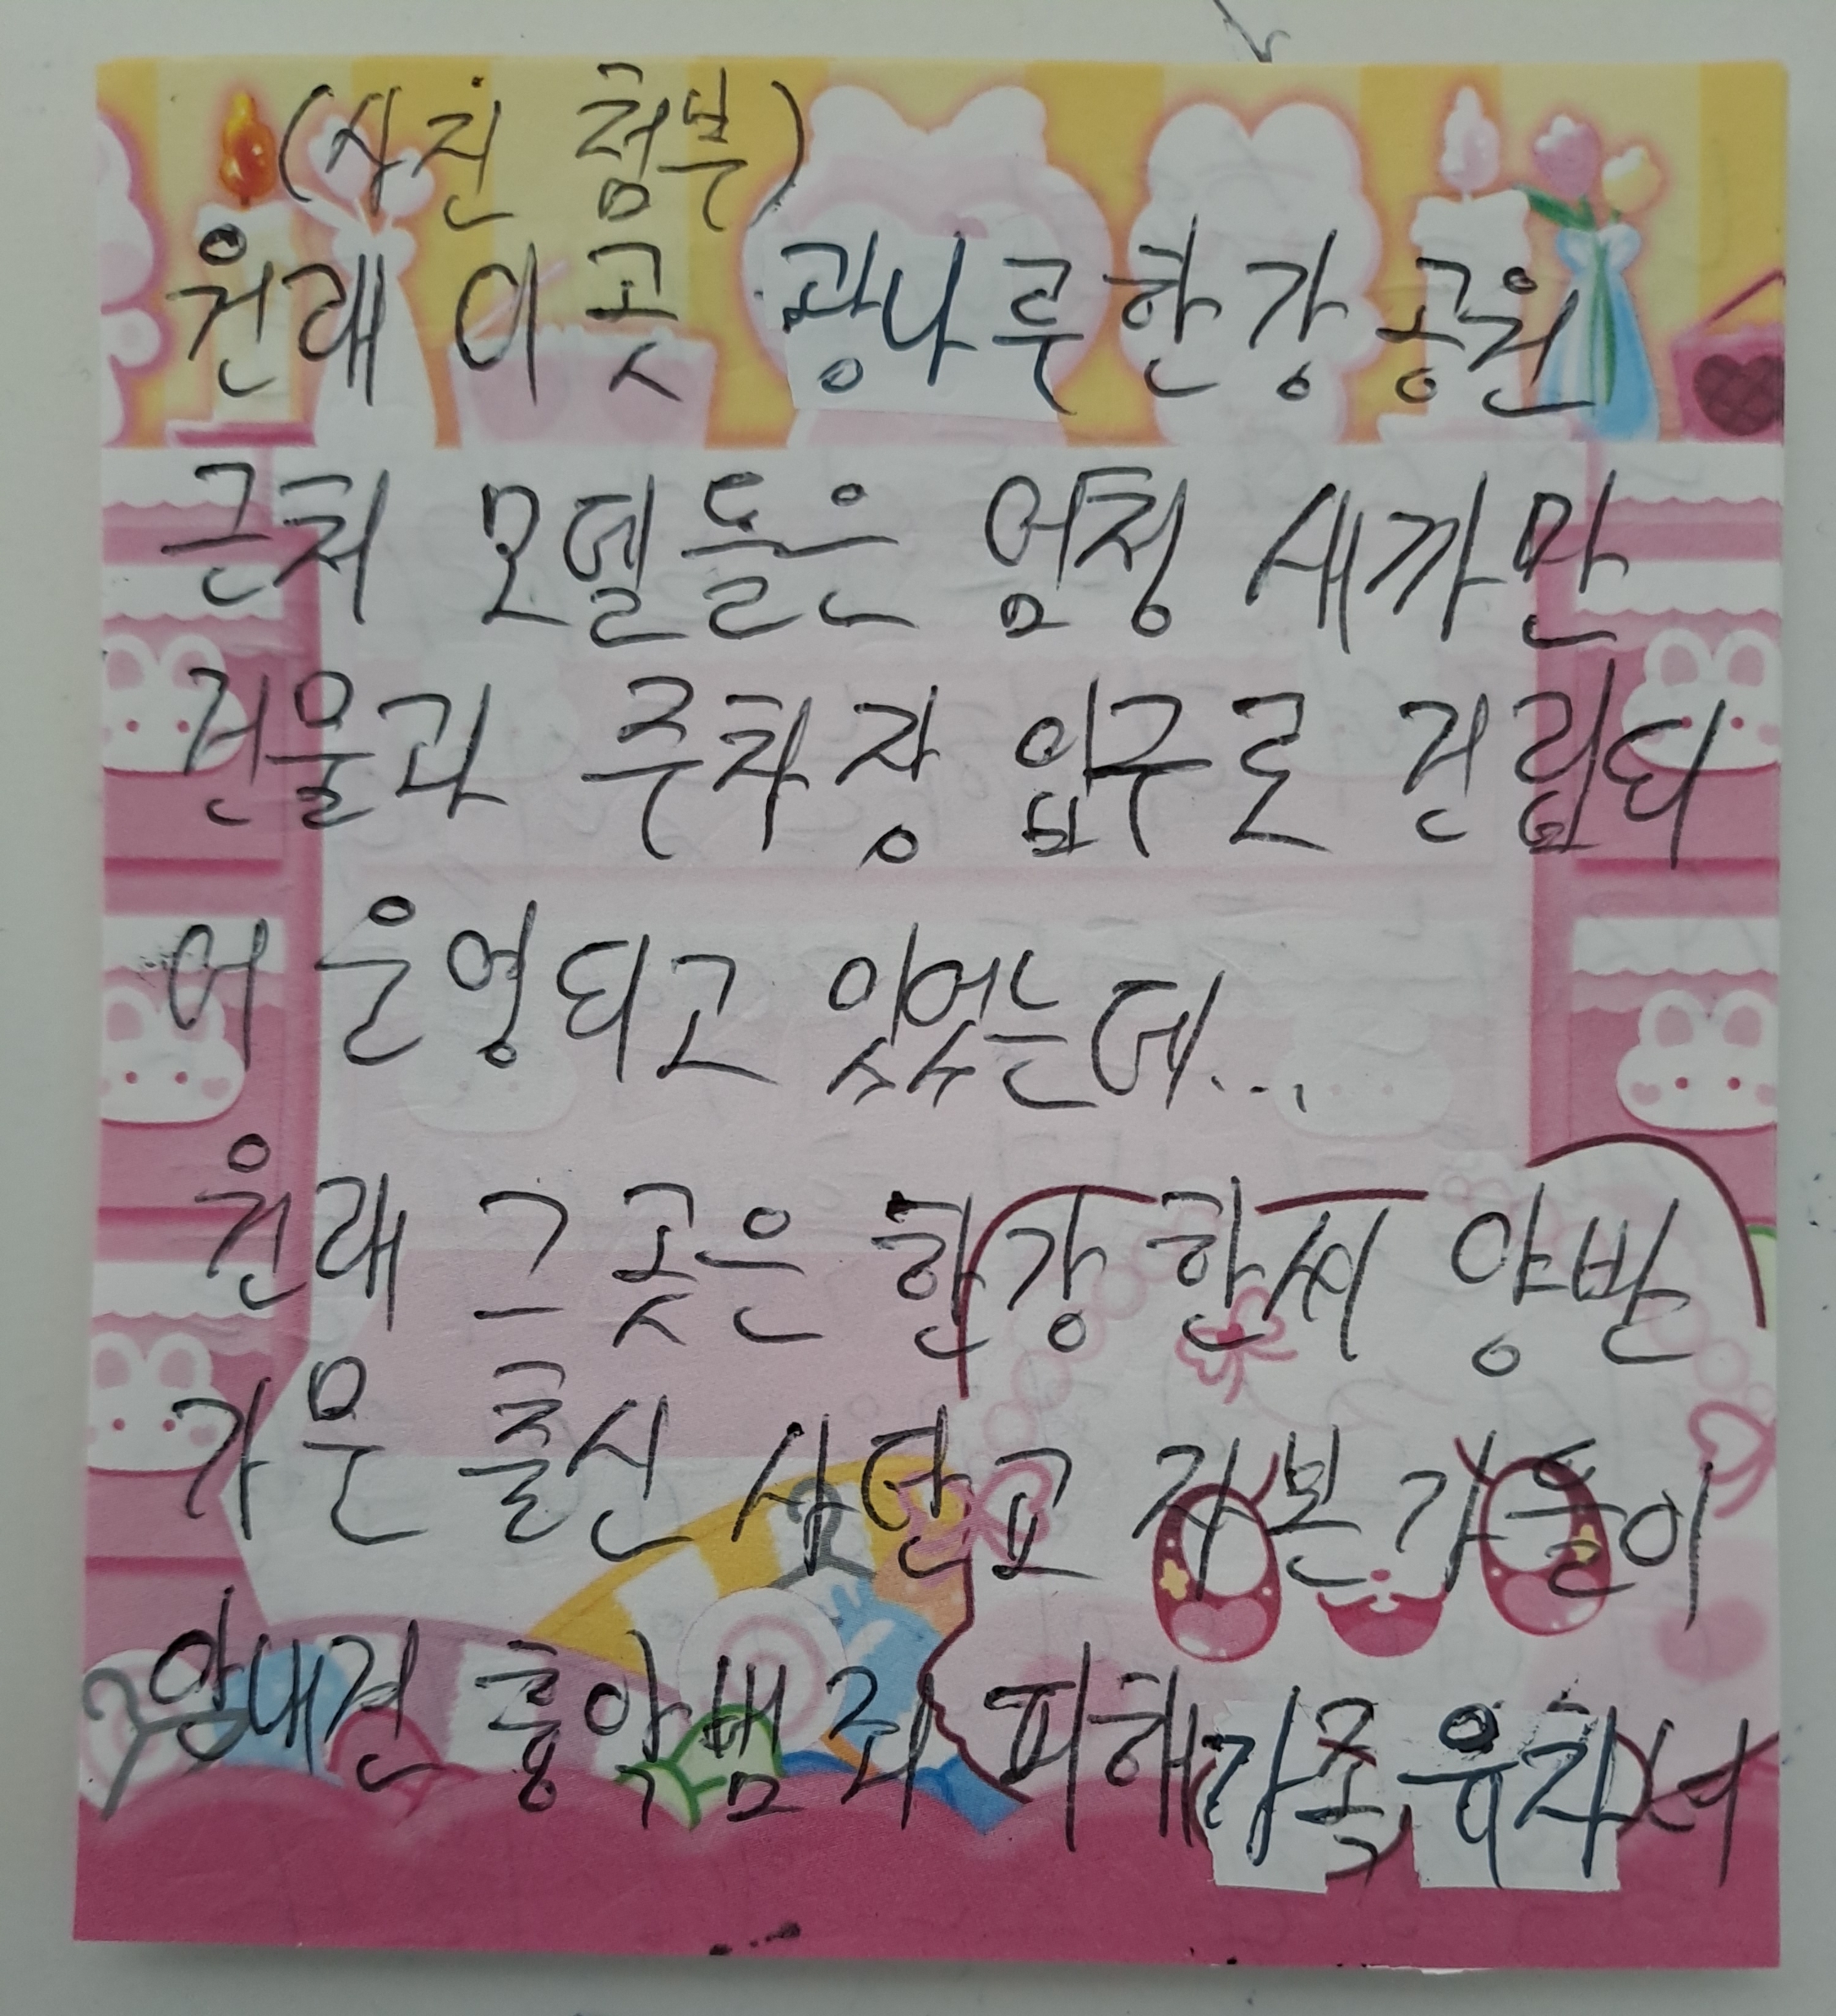 (사진 첨부)
원래 이곳 광나루한강공원
근처 모델들은 엄청 새까만
건물과 주차장 입구로 건립되
어 운영되고 있었는데...
원래 그곳은 한강한씨 양반
가문 출신 상단고 자본가들이
앙내전 흉악범죄 피해가족유자녀